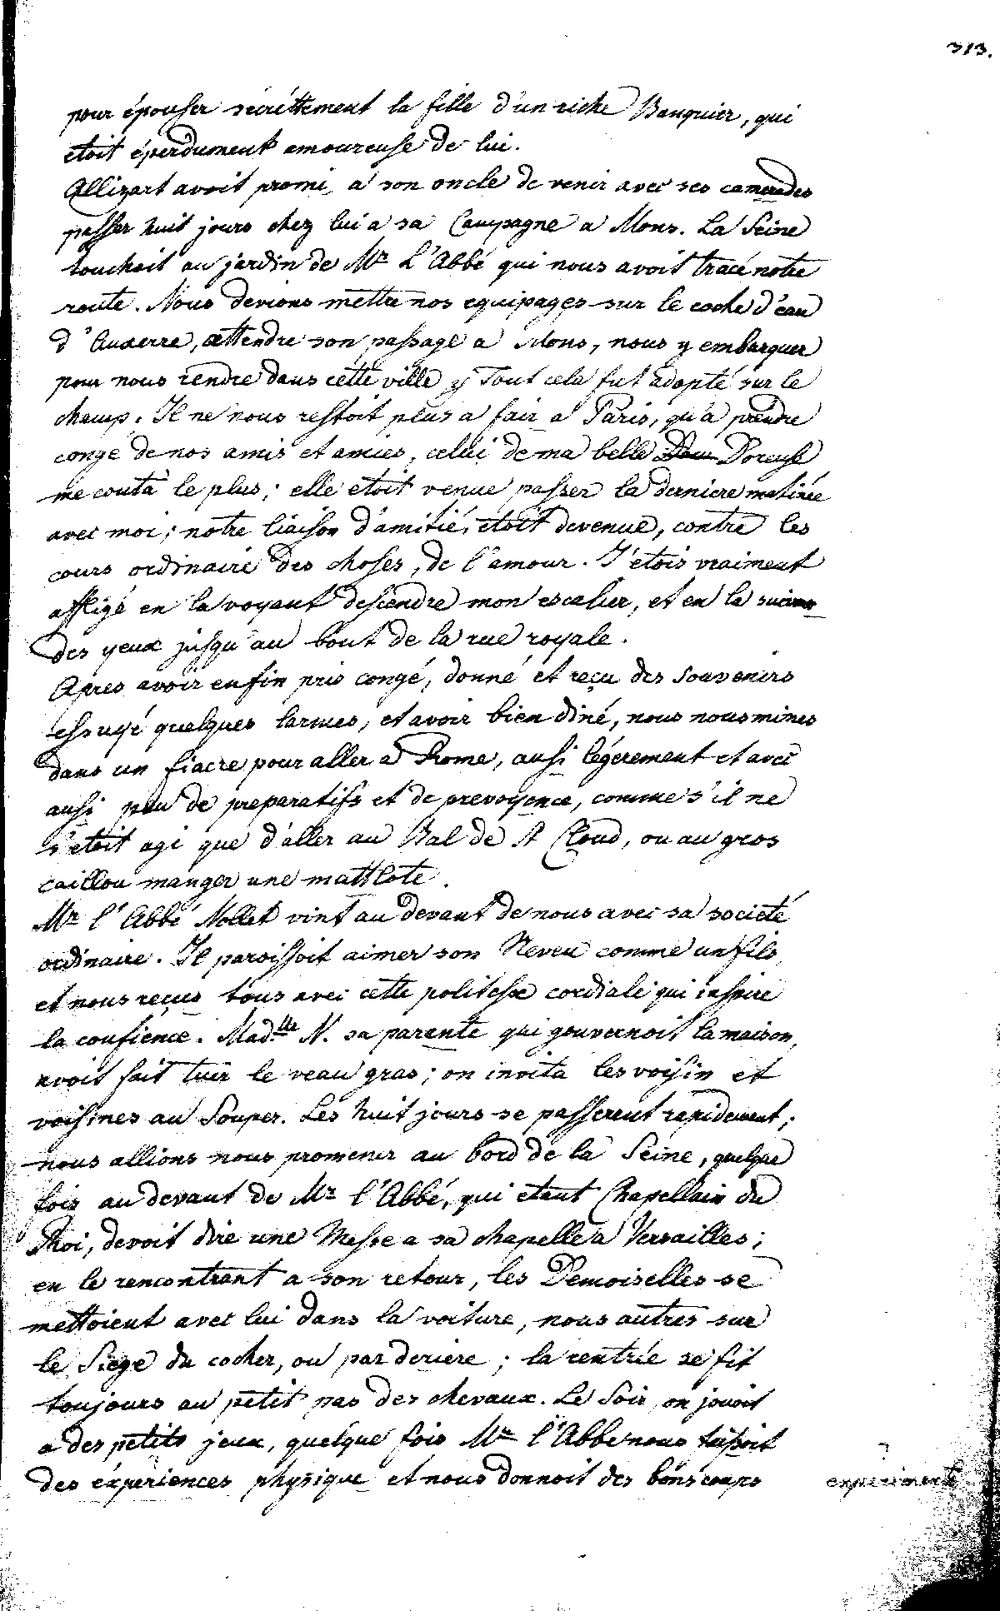 313.
pour épouser sécréttement la fille d'un riche Banquier, qui
etoit éperdument amoureuse de lui.
Allizart avoit promi a son oncle de venir avec ses camerades
passer huit jours chez lui a sa Campagne a Mons. La Seine
touchoit au jardin de Mr L'Abbé qui nous avoit tracé notre
route. Nous devions mettre nos equipages sur le coche d'eau
d'Auxerre, attendre son passage a Mons, nous y embarquer
pour nous rendre dans cette ville Tout cela fut adopté sur le
champ. Il ne nous restoit plus a fair a Paris, qu'a prendre
congé de nos amis et amies, cellui de ma belle Doreuse
me couta le plus; elle etoit venue passer la derniere matinée
avec moi; notre liaison d'amitié, étoit devenue, contre les
cours ordinaire des choses, de l'amour. J'etois vraiment
affligé en la voyant descendre mon escalier, et en la
des yeux jusqu'au bout de la rue royale.
Apres avoir enfin pris congé, donné et reçu des souvenirs
essuyé quelques larmes, et avoir bien diné, nous nous mimes
dans un fiacre pour aller a Rome, ausi légerement et avec
ausi peu de preparatifs et de prevoyence, comme s'il ne
s'etoit agi que d'aller au Bal de St Cloud, ou au gros
caillou manger une mattlote.
Mr l'Abbé Nollet vint au devant de nous avec sa societé
ordinaire. Il paroissoit aimer son Neveu comme un fils,
et nous reçus tous avec cette politesse cordiale qui inspire
la confience. Madlle N. sa parente qui gouvernoit la maison,
avoit fait tuer le veau gras; on invita les voisin et
voisines au Souper. Les huit jours se passerent rapidement;
nous allions nous promener au bord de la Seine, quelque
fois au devant de Mr l'Abbé, qui etant Chapellain du
Roi, devoit dire une Messe a sa chapelle a Versailles;
en le rencontrant a son retour, les Demoiselles se
mettoient avec lui dans la voiture, nous autres sur
le Siege du cocher, ou par deriere; la rentrée se fit
toujours au petit pas des chevaux. Le Soir, on jouoit
a des petits jeux, quelque fois Mr l'Abbé nous faisoit
des experiences physique et nous donnoit des bons coups